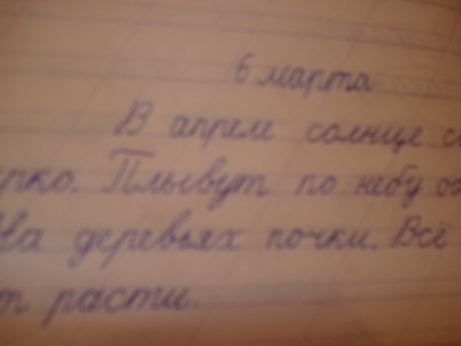 6 марта
В апреле солнце с
ярко. Плывут по небу об
На деревьях почки. Всё
т расти.